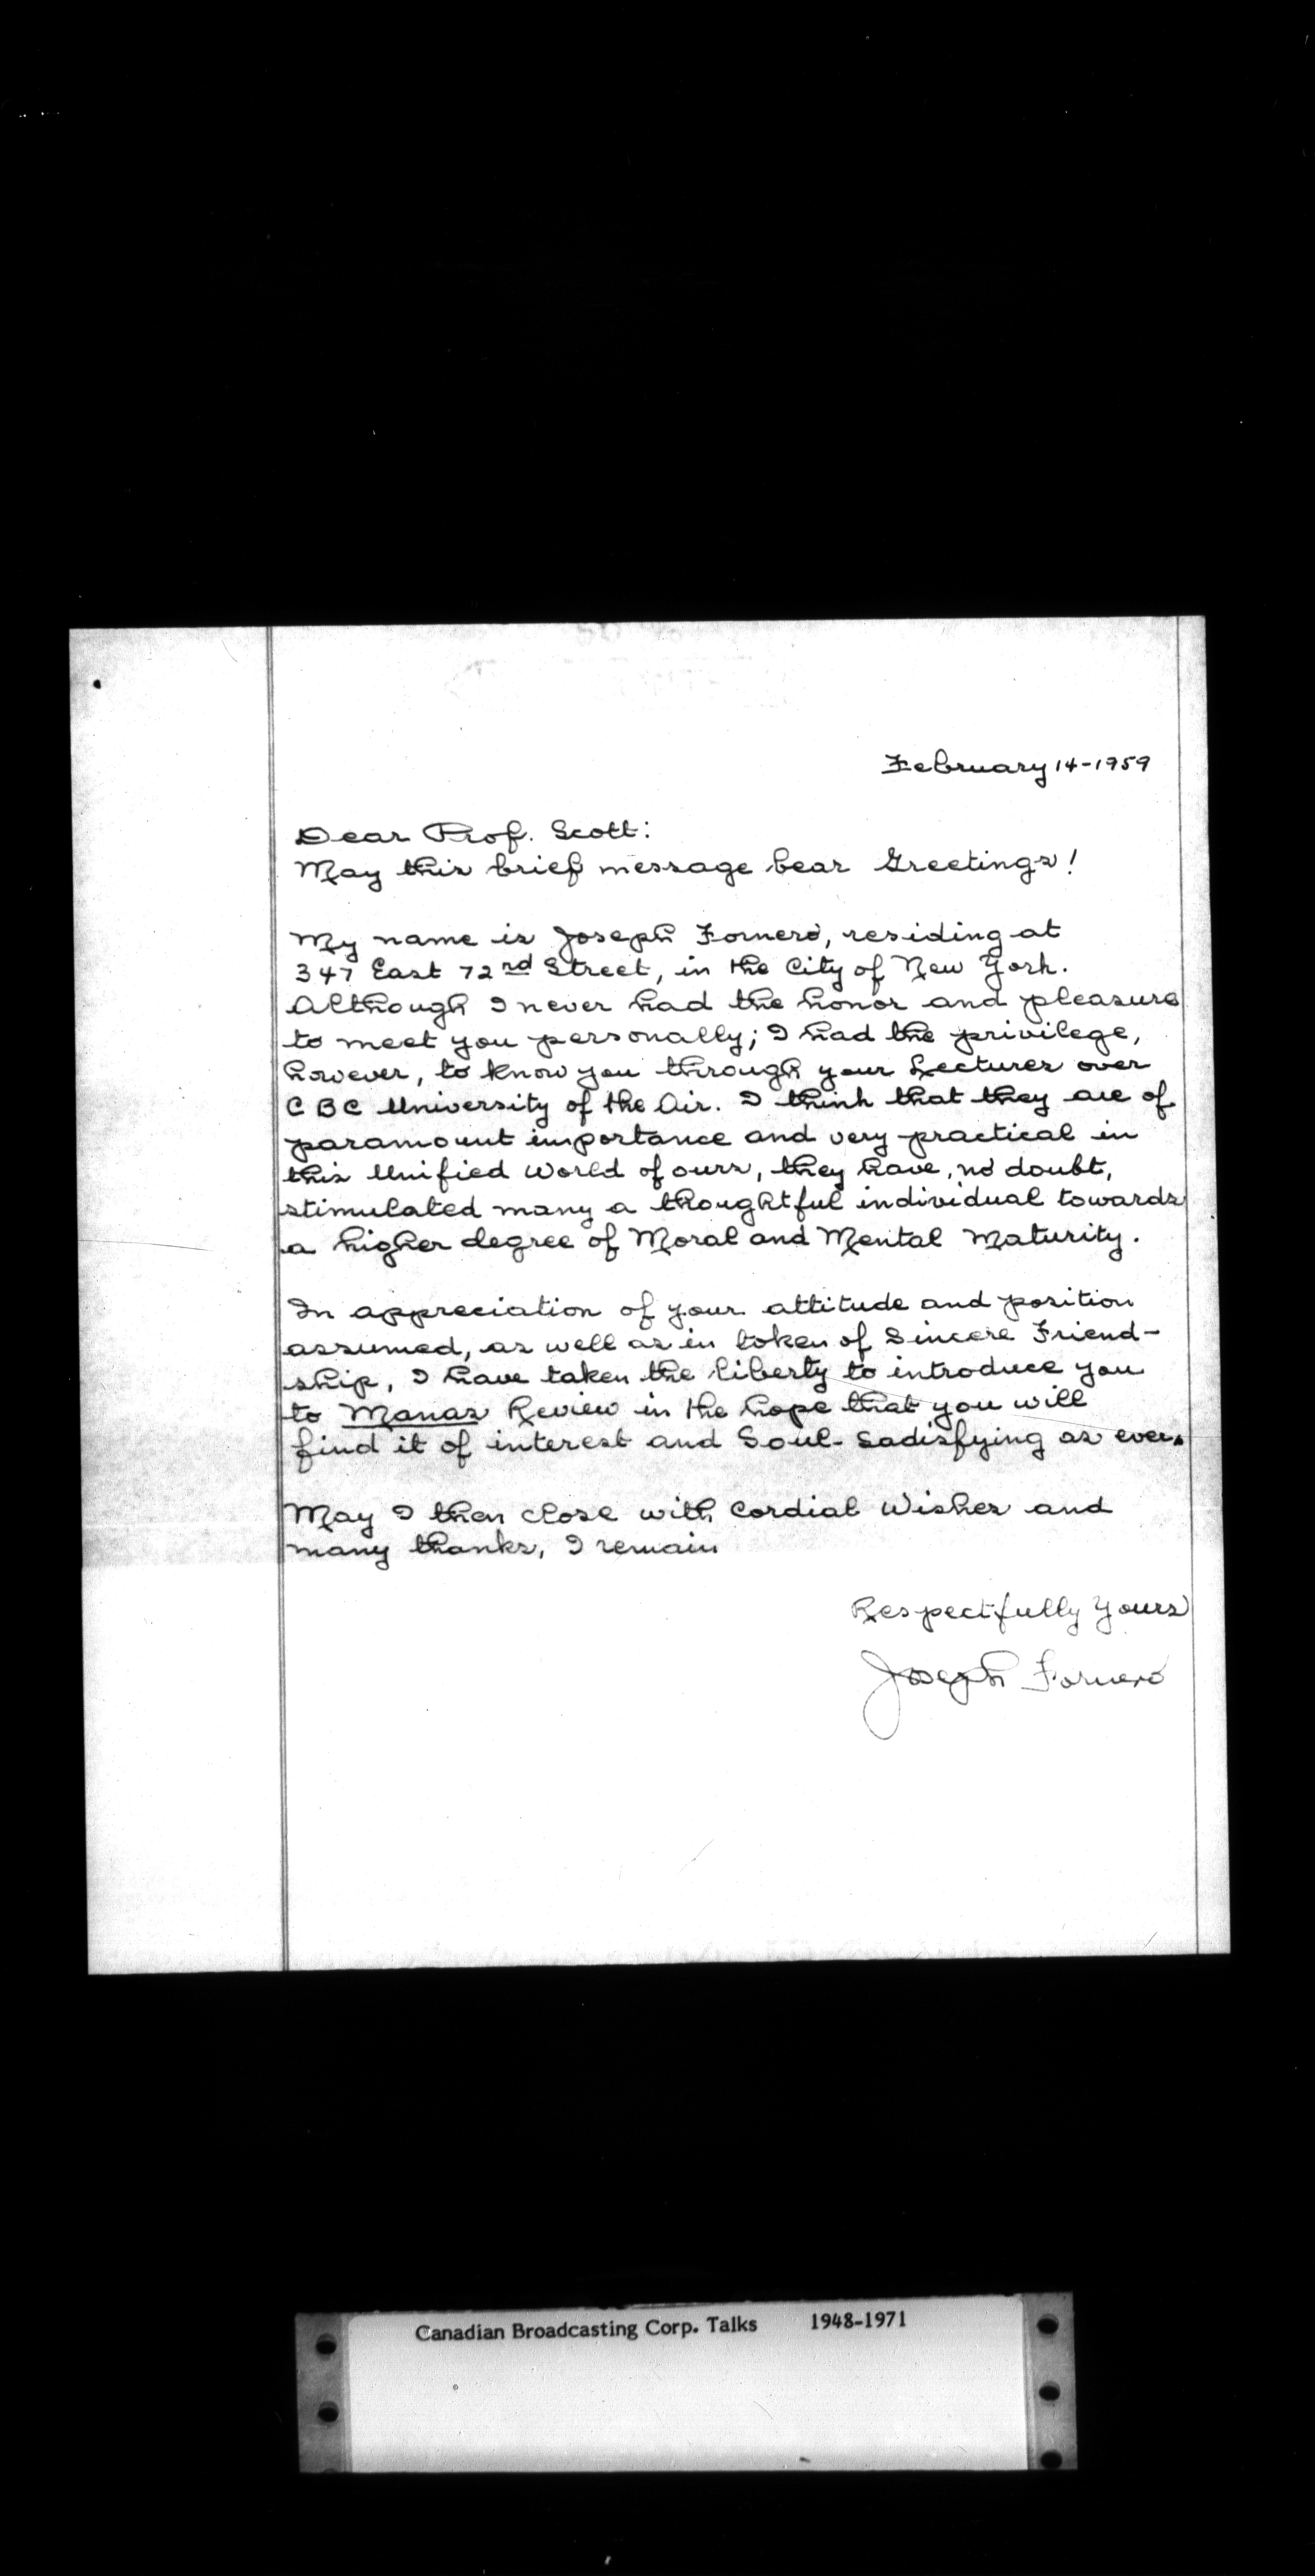 February 14-1959
Dear Prof. Scott:
May this brief message bear Greetings!
My name is Joseph Fornero, residing at
347 East 72nd Street, in the City of New York.
Although I never had the honor and pleasure
to meet you personally; I had the privilege,
however, to know you through your Lectures over
CBC University of the Air. I think that they are of
paramount importance and very practical in
this Unified World of ours, they have, no doubt,
stimulated many a thoughtful individual towards
a higher degree of Moral and Mental Maturity.
In appreciation of your attitude and position
assumed, as well as in token of Sincere Friend-
ship, I have taken the liberty to introduce you
to Manas Review in the hope that you will
find it of interest and Soul-Sadisfying as ever.
May I then close with Cordial Wishes and
many thanks, I remain
Respectfully Yours
Joseph Fornero
Canadian Broadcasting Corp. Talks 1948-1971